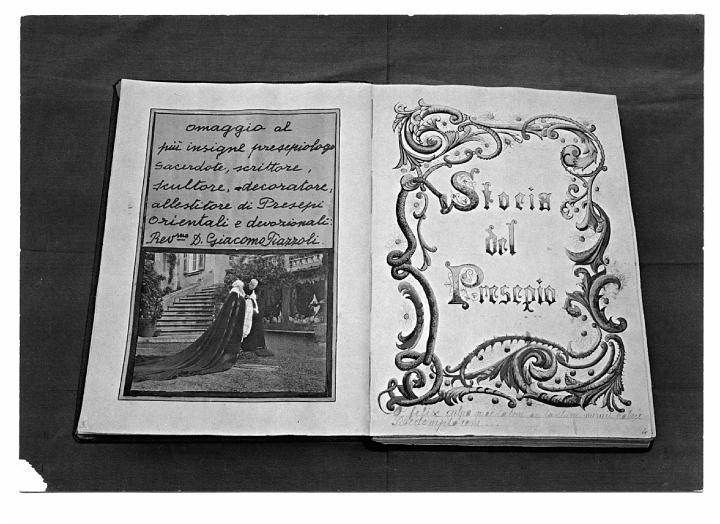 omaggio al
più insigne presepiologo
Sacerdote, scrittore,
scultore, decoratore,
allestitore di Presepi
Orientali e devozionali:
Rev.mo D. Giacomo Piazzoli.
Storia
del
Presepio
O felix culpa
Redemptorem...